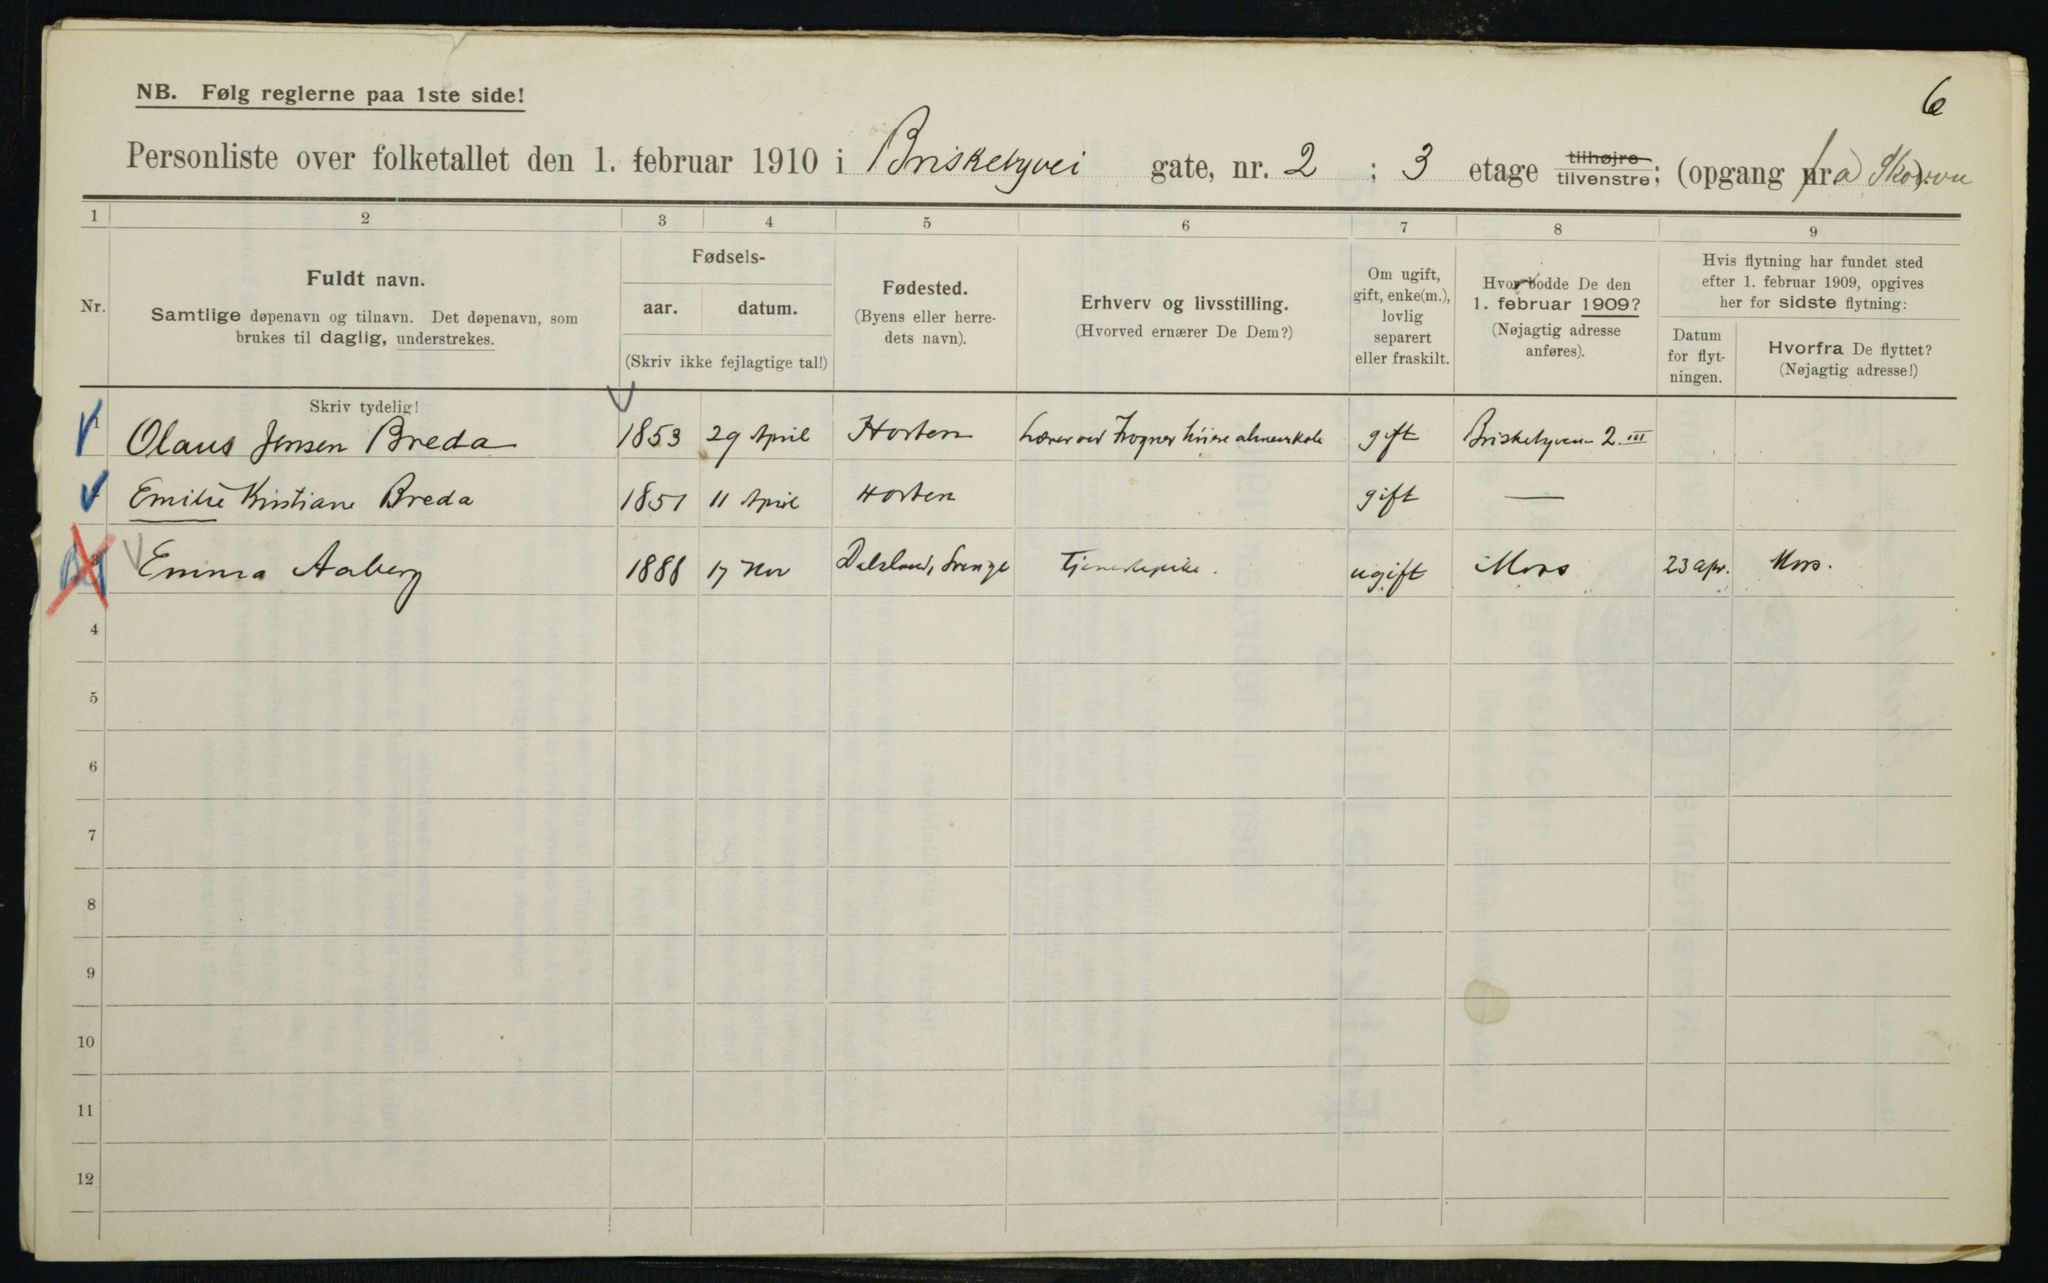 6
NB. Følg reglerne paa 1ste side!
Personliste over folketallet den 1. februar 1910 i Briskebyvei gate, nr. 2 ; 3 etage tilhøjre tilvenstre; (opgang fra
1 2 3 4 5 6 7 8 9
Nr.
Fuldt navn.
Samtlige døpenavn og tilnavn. Det døpenavn, som
brukes til daglig, understrekes.
Fødsels-
aar. datum.
(Skriv ikke fejlagtige tal!)
Fødested.
(Byens eller herre-
dets navn).
Erhverv og livsstilling.
(Hvorved ernærer De Dem?)
Om ugift,
gift, enke(m.),
lovlig
separert
eller fraskilt.
Hvor bodde De den
1. februar 1909?
(Nøjagtig adresse
anføres).
Hvis flytning har fundet sted
efter 1. februar 1909, opgives
her for sidste flytning:
Datum
for flyt-
ningen.
Hvorfra De flyttet?
(Nøjagtig adresse!)
Skriv tydelig!
Olaus Jensen Breda 1853 29 April Horten Lærer ved Frogner høiere almenskole gift Briskebyveien 2 III
Emilie Kristiane Breda 1851 11 April Horten gift —
Emma Aaberg 1888 17 Nov Dalsland, Sverige Tjenestepike. ugift Moss 23 apr. Moss.
4
5
6
7
8
9
10
11
12